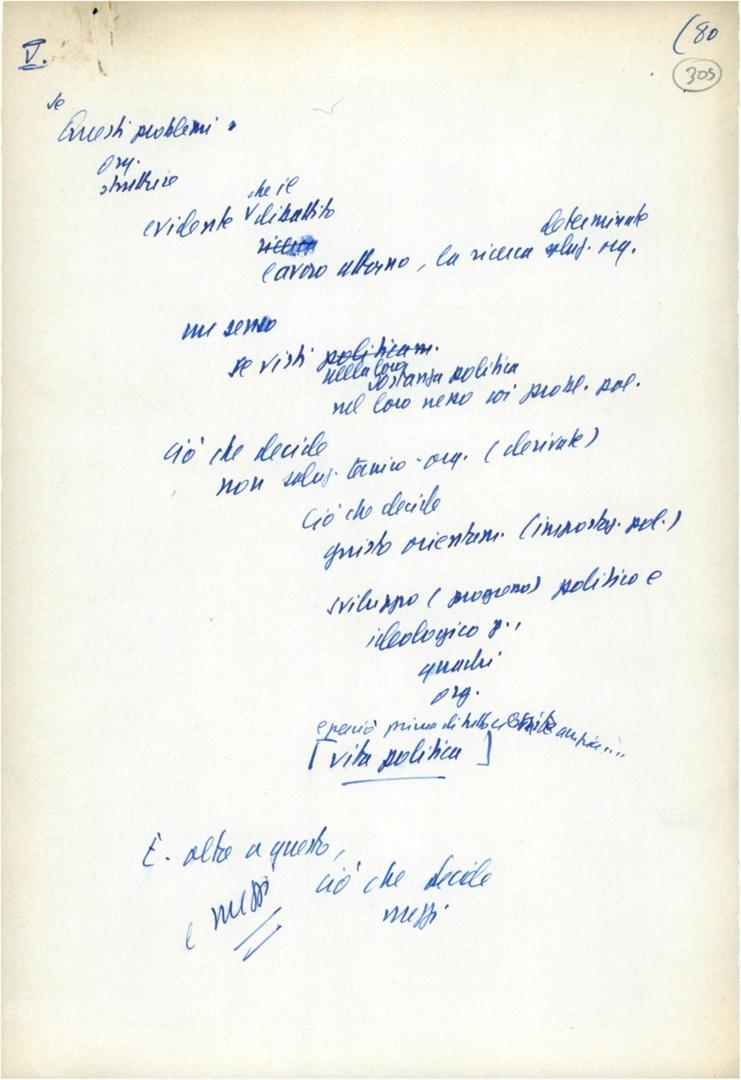 V.
(80
305
se
Questi problemi
org.
strutture
che il
evidente dibattito
ricerca
determinate
lavoro attorno, la ricerca soluz. org.
un senso
se visti politicam.
nella loro
sostanza politica
nel loro nesso coi probl. pol.
ciò che decide
non soluz. tecnico-org. (derivate)
Ciò che decide
giusto orientam. (impostaz. pol.)
sviluppo (progresso) politico e
ideologico p.,
quadri
org.
e perciò prima di tutto
[vita politica]
E. oltre a questo,
ciò che decide
e mezzi
mezzi